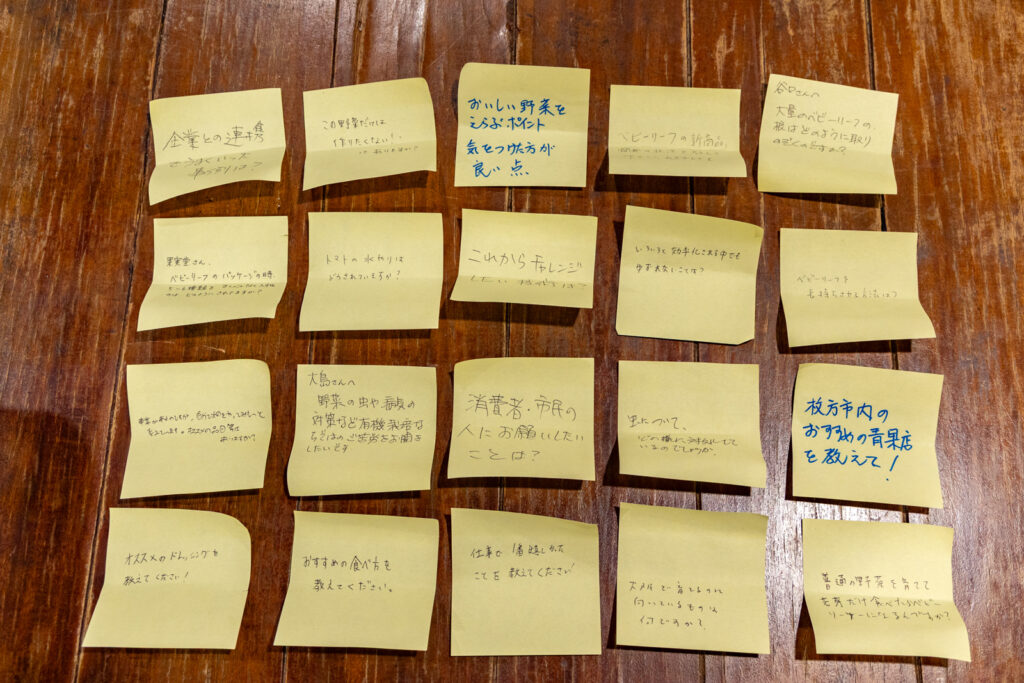 企業との連携
この野菜だけは
作りたくない!、
おいしい野菜を
えらぶポイント
気をつけた方が
良い点
ベビーリーフの新商品
谷口さんへ
大量のベビーリーフの、
根はどのように取り
のぞくのですか?
果実堂さん、
ベビーリーフのパッケージの時、
トマトの水やりは
どうされていますか?
これからチャレンジ
いろいろと効率化される中でも
ゆずれないことは?
ベビーリーフを
長持ちさせる方法は?
大島さんへ
野菜の虫や病気の
対策など有機栽培な
らではのご苦労をお聞き
したいです
消費者・市民の
人にお願いしたい
ことは?
虫について、
どの様に対処して
いるのでしょうか
枚方市内の
おすすめの青果店
を教えて!
オススメのドレッシングを
教えてください!
おすすめの食べ方を
教えてください。
仕事で1番嬉しかった
ことを教えてください
何ですか?
普通の野菜を育てて
若芽だけ食べたらベビー
リーフになるんですか?